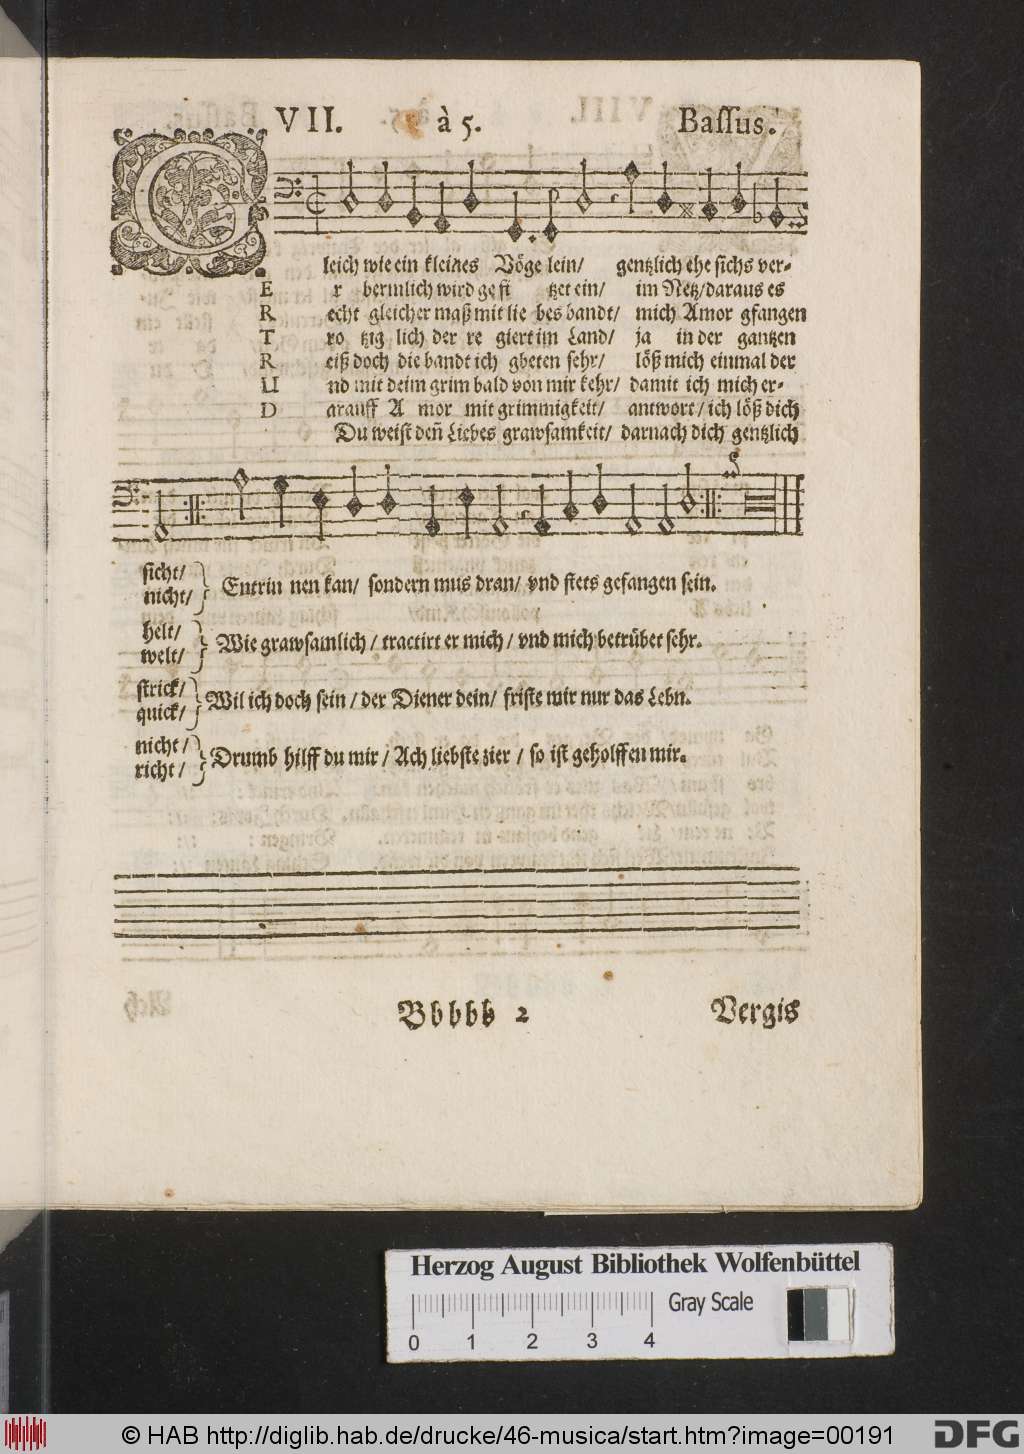 VII. à 5. Bassus.
G
leich wie ein kleines Vöge lein/ gentzlich ehe sichs ver-
E r bermlich wird ge fi tzet ein/ im Netz/daraus es
R echt gleicher maß mit lie bes bandt/ mich Amor gfangen
T ro tzig lich der re giert im Land/ ja in der gantzen
R eiß doch die bandt ich gbeten sehr/ löß mich einmal der
U nd mit deim grim bald von mir kehr/ damit ich mich er-
D arauff A mor mit grimmigkeit/ antwort/ ich löß dich
Du weist deñ Liebes grawsamkeit/ darnach dich gentzlich
sicht/
nicht/ Entrin nen kan/ sondern mus dran/ vnd stets gefangen sein.
helt/
welt/ Wie grawsamlich/ tractirt er mich/ vnd mich betrübet sehr.
strick/
quick/ Wil ich doch sein/ der Diener dein/ friste mir nur das Lebn.
nicht/
richt/ Drumb hilff du mir/ Ach liebste zier/ so ist geholffen mir.
Bbbbb 2 Vergis
Herzog August Bibliothek Wolfenbüttel
Gray Scale
0 1 2 3 4
© HAB http://diglib.hab.de/drucke/46-musica/start.htm?image=00191
DFG